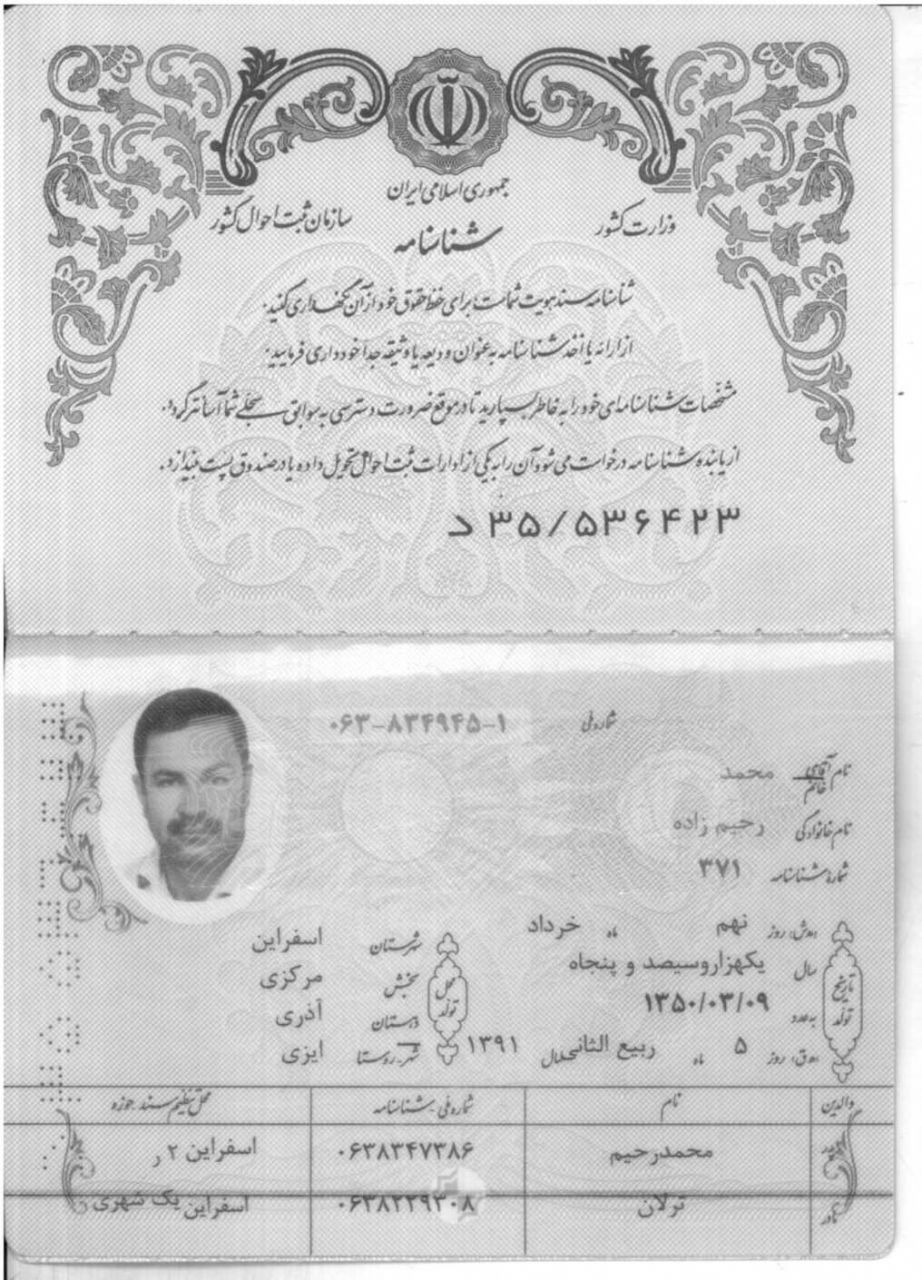 جمهوری اسلامی ایران
وزارت کشور
سازمان ثبت احوال کشور
شناسنامه
شناسنامه سند هویت شماست برای حفظ حقوق خود از آن نگهداری کنید.
از ارائه یا اخذ شناسنامه به عنوان ودیعه یا وثیقه جداً خودداری فرمایید.
مشخصات شناسنامه‌ای خود را به خاطر بسپارید تا در موقع ضرورت دسترسی به سوابق سجلی شما آسانتر گردد.
از یابنده شناسنامه درخواست می شود آن را به یکی از ادارات ثبت احوال تحویل داده یا در صندوق پست بیندازد.
د ۳۵/۵۳۶۴۲۳
شماره ملی ۰۶۳-۸۳۴۹۴۵-۱
نام آقای خانم محمد
نام خانوادگی رحیم زاده
شماره شناسنامه ۳۷۱
تاریخ تولد
ه‍.ش: روز نهم ماه خرداد
سال یکهزاروسیصد و پنجاه
به عدد ۱۳۵۰/۰۳/۰۹
ه‍.ق: روز ۵ ماه ربیع الثانی سال ۱۳۹۱
محل تولد
شهرستان اسفراین
بخش مرکزی
دهستان آذری
شهر، روستا ایزی
والدین نام شماره ملی - شناسنامه محل تنظیم سند حوزه
پدر محمدرحیم ۰۶۳۸۳۴۷۳۸۶ اسفراین ۲ ر
مادر ترلان ۰۶۳۸۲۲۹۳۰۸ اسفراین یک شهری